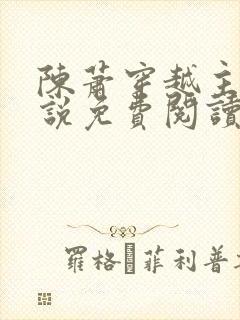 陳蕭穿越主
說免費閱讀
羅格 菲利普